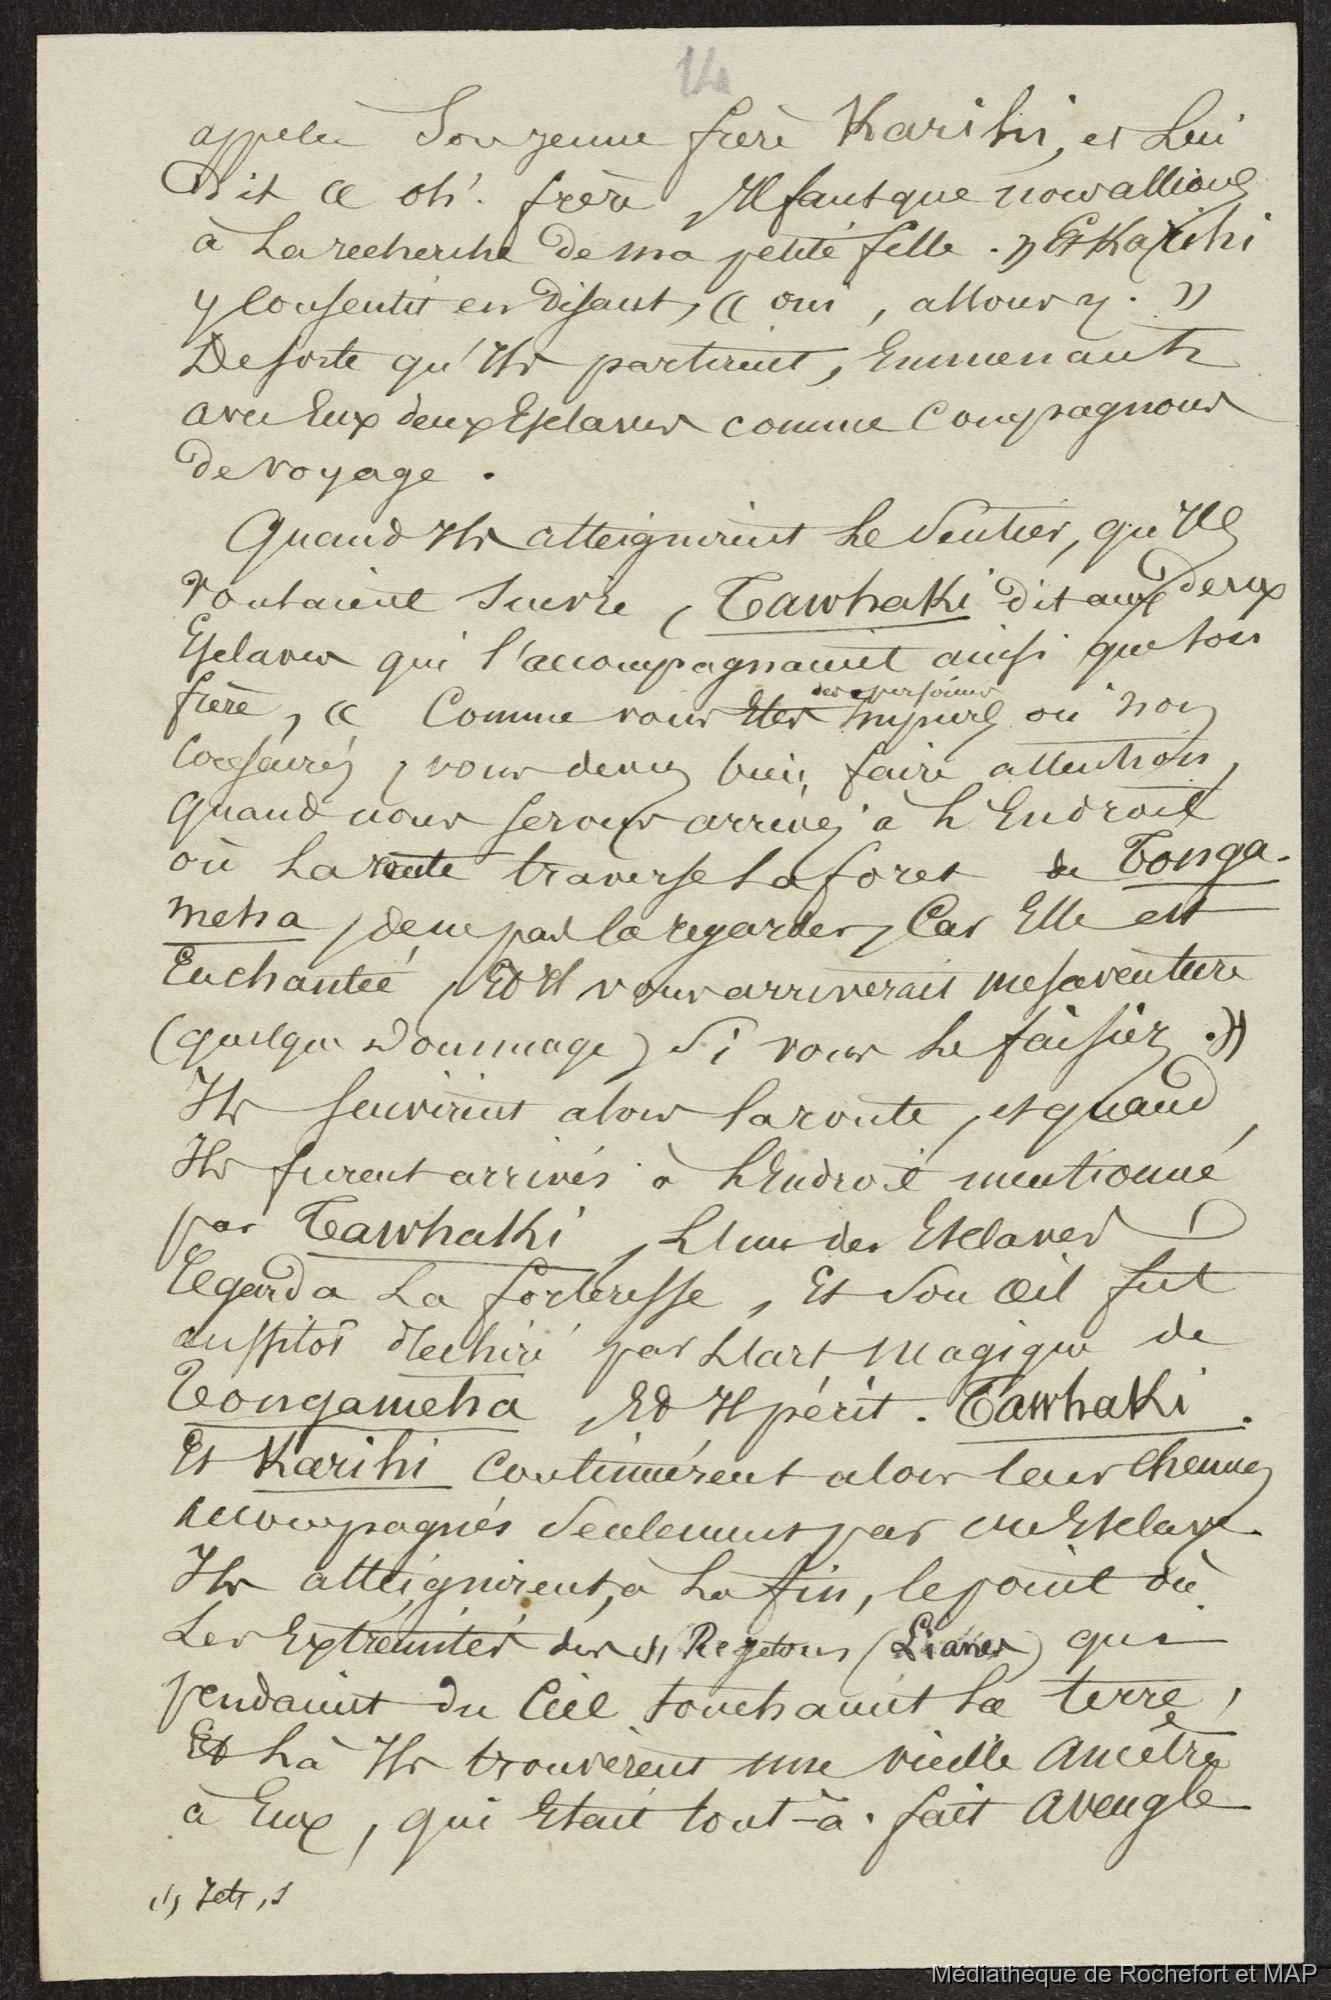 14
appeler Son jeune frère Karihi, et Lui
Dit « oh! frère, Il faut que nous allions
à La recherche de ma petite fille. » Et Karihi
y Consentit en Disant, « oui, allons y. »
De sorte qu'Ils partirent, Emmenants
avec Eux deux Esclaves comme Compagnons
de voyage.
Quand Ils atteignirent Le Sentier, qu'Ils
voulaient Suivre, Tawhaki dit aux deux
Esclaves qui l'accompagnaient ainsi que son
frère, « Comme vous Etes des personnes Impures ou non
Consacrés, vous devez bien faire attention,
quand nous serons arrivés à L'Endroit
où La route traverse La foret de Tonga-
meha, de ne pas la regarder, Car Elle est
Enchantée, Et Il vous arriverait mesaventure
(quelque Dommage) Si vous Le faisiez. »
Ils suivirent alors la route, et quand,
Ils furent arrivés à L'Endroit mentionné
par Tawhaki, L'un des Esclaves
Regarda La forteresse, Et Son œil fut
aussitôt déchiré par L'art Magique de
Tongameha, Et Il périt. Tawhaki.
Et Karihi Continuèrent alors leur Chemin,
accompagnés Seulement par un Esclave.
Ils atteignirent, à La fin, le point où
Les Extremités des (1) Rejetons (Lianes) qui
pendaient du Ciel touchaient La terre,
Et Là Ils trouvèrent une vieille Ancêtre
à Eux, qui Etait tout-à-fait Aveugle
(1) Jet, s
Médiathèque de Rochefort et MAP